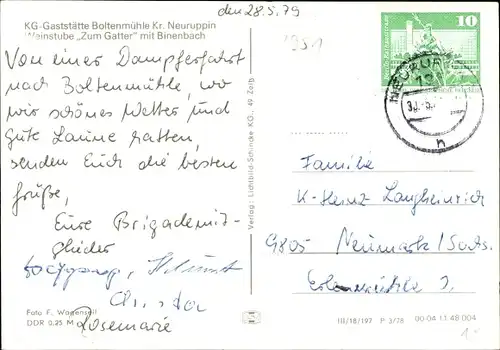 den 28.5.79
KG-Gaststätte Boltenmühle Kr. Neuruppin
Weinstube „Zum Gatter" mit Binenbach
Von einer Dampferfahrt
nach Boltenmühle, wo
wir schönes Wetter und
gute Laune hatten,
senden Euch die besten
Grüße,
Eure Brigademit-
glieder
Helmut
Rosemarie
Foto F. Wagenseil
DDR 0,25 M
Verlag: Lichtbild-Schincke KG, 49 Zeitz
10
NEURUPPIN
n
Familie
K-Heinz Langheinrich
9805 Neumark/Sa.
Erlenmühle
III/18/197 P 3/78 00-04 11 48 004